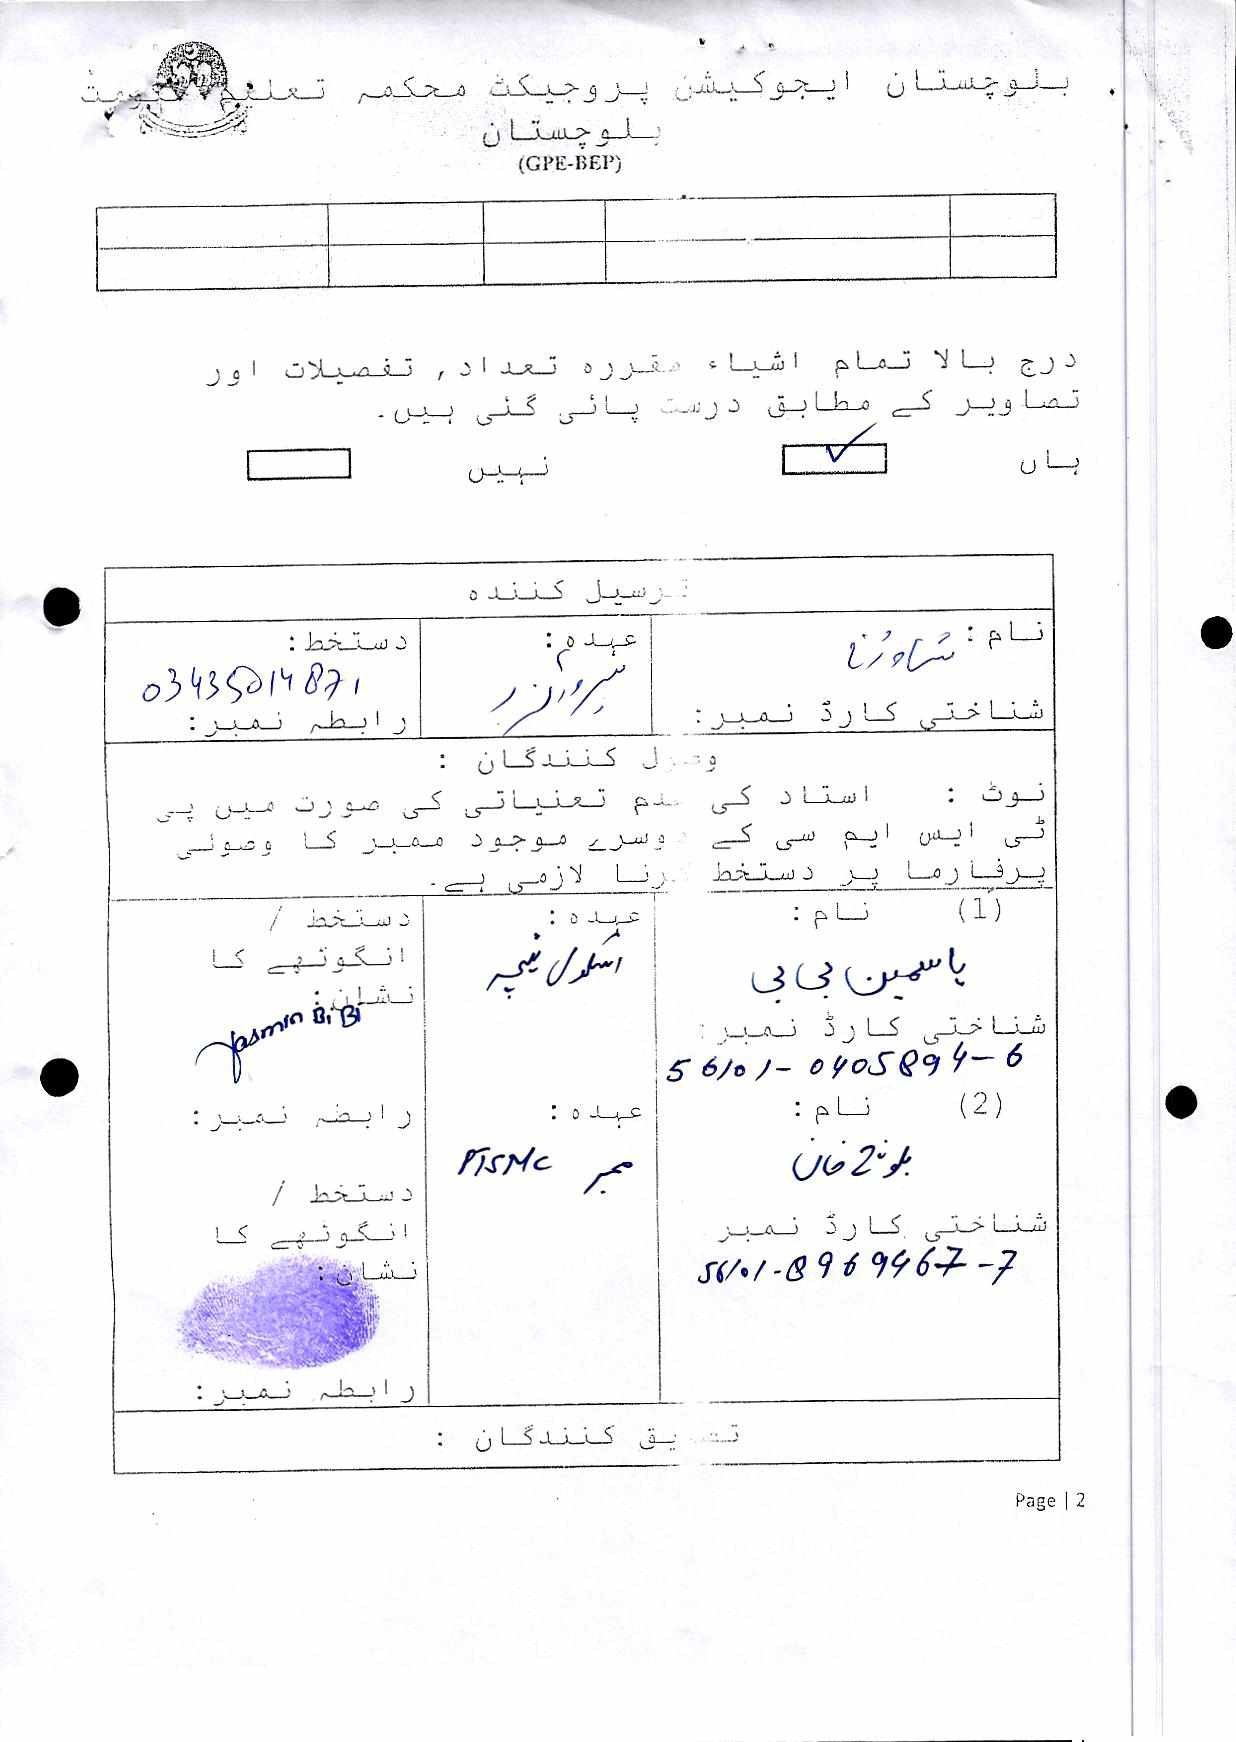 بلوچستان ایجوکیشن پروجیکٹ محکمہ تعلیم حکومت
بلوچستان
(GPE-BEP)
درج بالا تمام اشیاء مقررہ تعداد, تفصیلات اور
تصاویر کے مطابق درست پائی گئی ہیں.
ہاں ✓ نہیں
ترسیل کنندہ
نام: عہدہ: دستخط:
سپروائزر 03435014871
شناختی کارڈ نمبر: رابطہ نمبر:
وصول کنندگان :
نوٹ : استاد کی عدم تعنیاتی کی صورت میں پی
ٹی ایس ایم سی کے دوسرے موجود ممبر کا وصولی
پرفارما پر دستخط کرنا لازمی ہے.
(1) نام: عہدہ: دستخط /
انگوٹھے کا
یاسمین بی بی اسکول ٹیچر
نشان:
Yasmin BiBi
شناختی کارڈ نمبر:
56101-0405894-6
(2) نام: عہدہ: رابطہ نمبر:
خان ممبر PTSMC
دستخط /
شناختی کارڈ نمبر انگوٹھے کا
56101-8969467-7 نشان:
رابطہ نمبر:
تصدیق کنندگان :
Page | 2